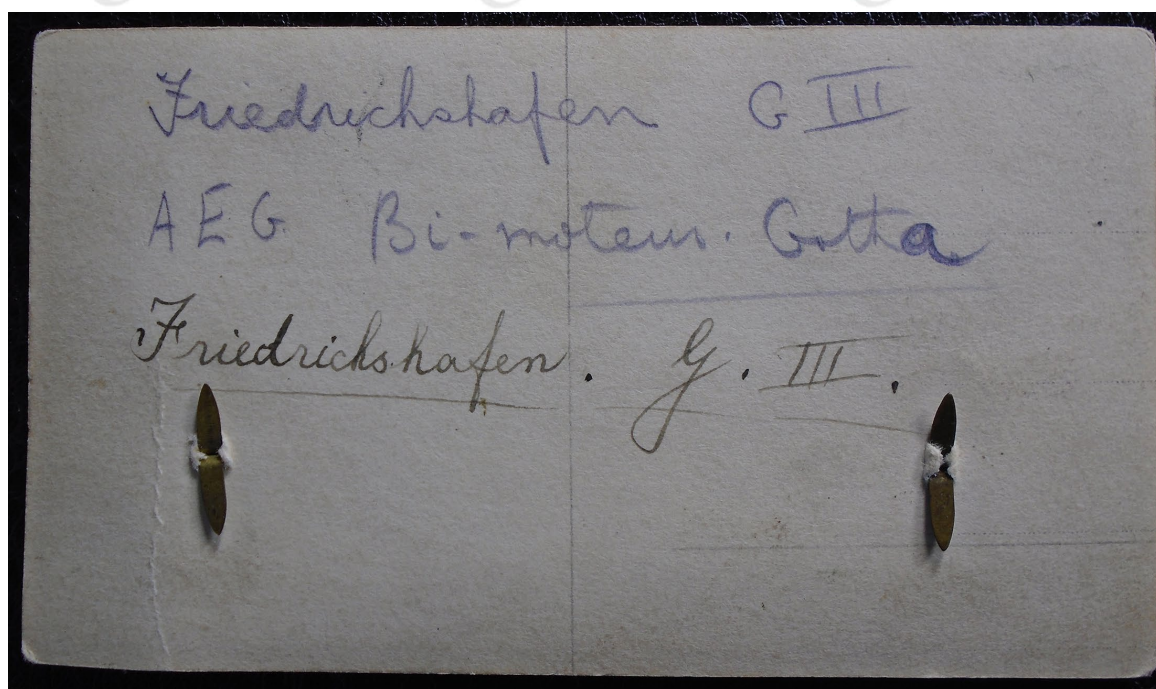 Friedrichshafen G III
AEG Bi-moteur. Gotha
Friedrichshafen. G. III.